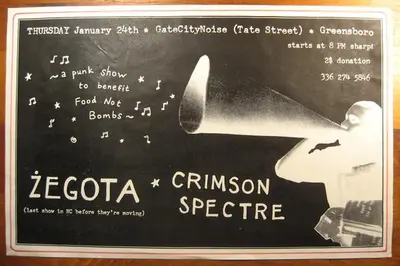 THURSDAY January 24th * GateCityNoise (Tate Street) * Greensboro
starts at 8 PM sharp!
2$ donation
336 274 5846
~a punk show
to benefit
Food Not
Bombs~
ŻEGOTA * CRIMSON
SPECTRE
(last show in NC before they're moving)